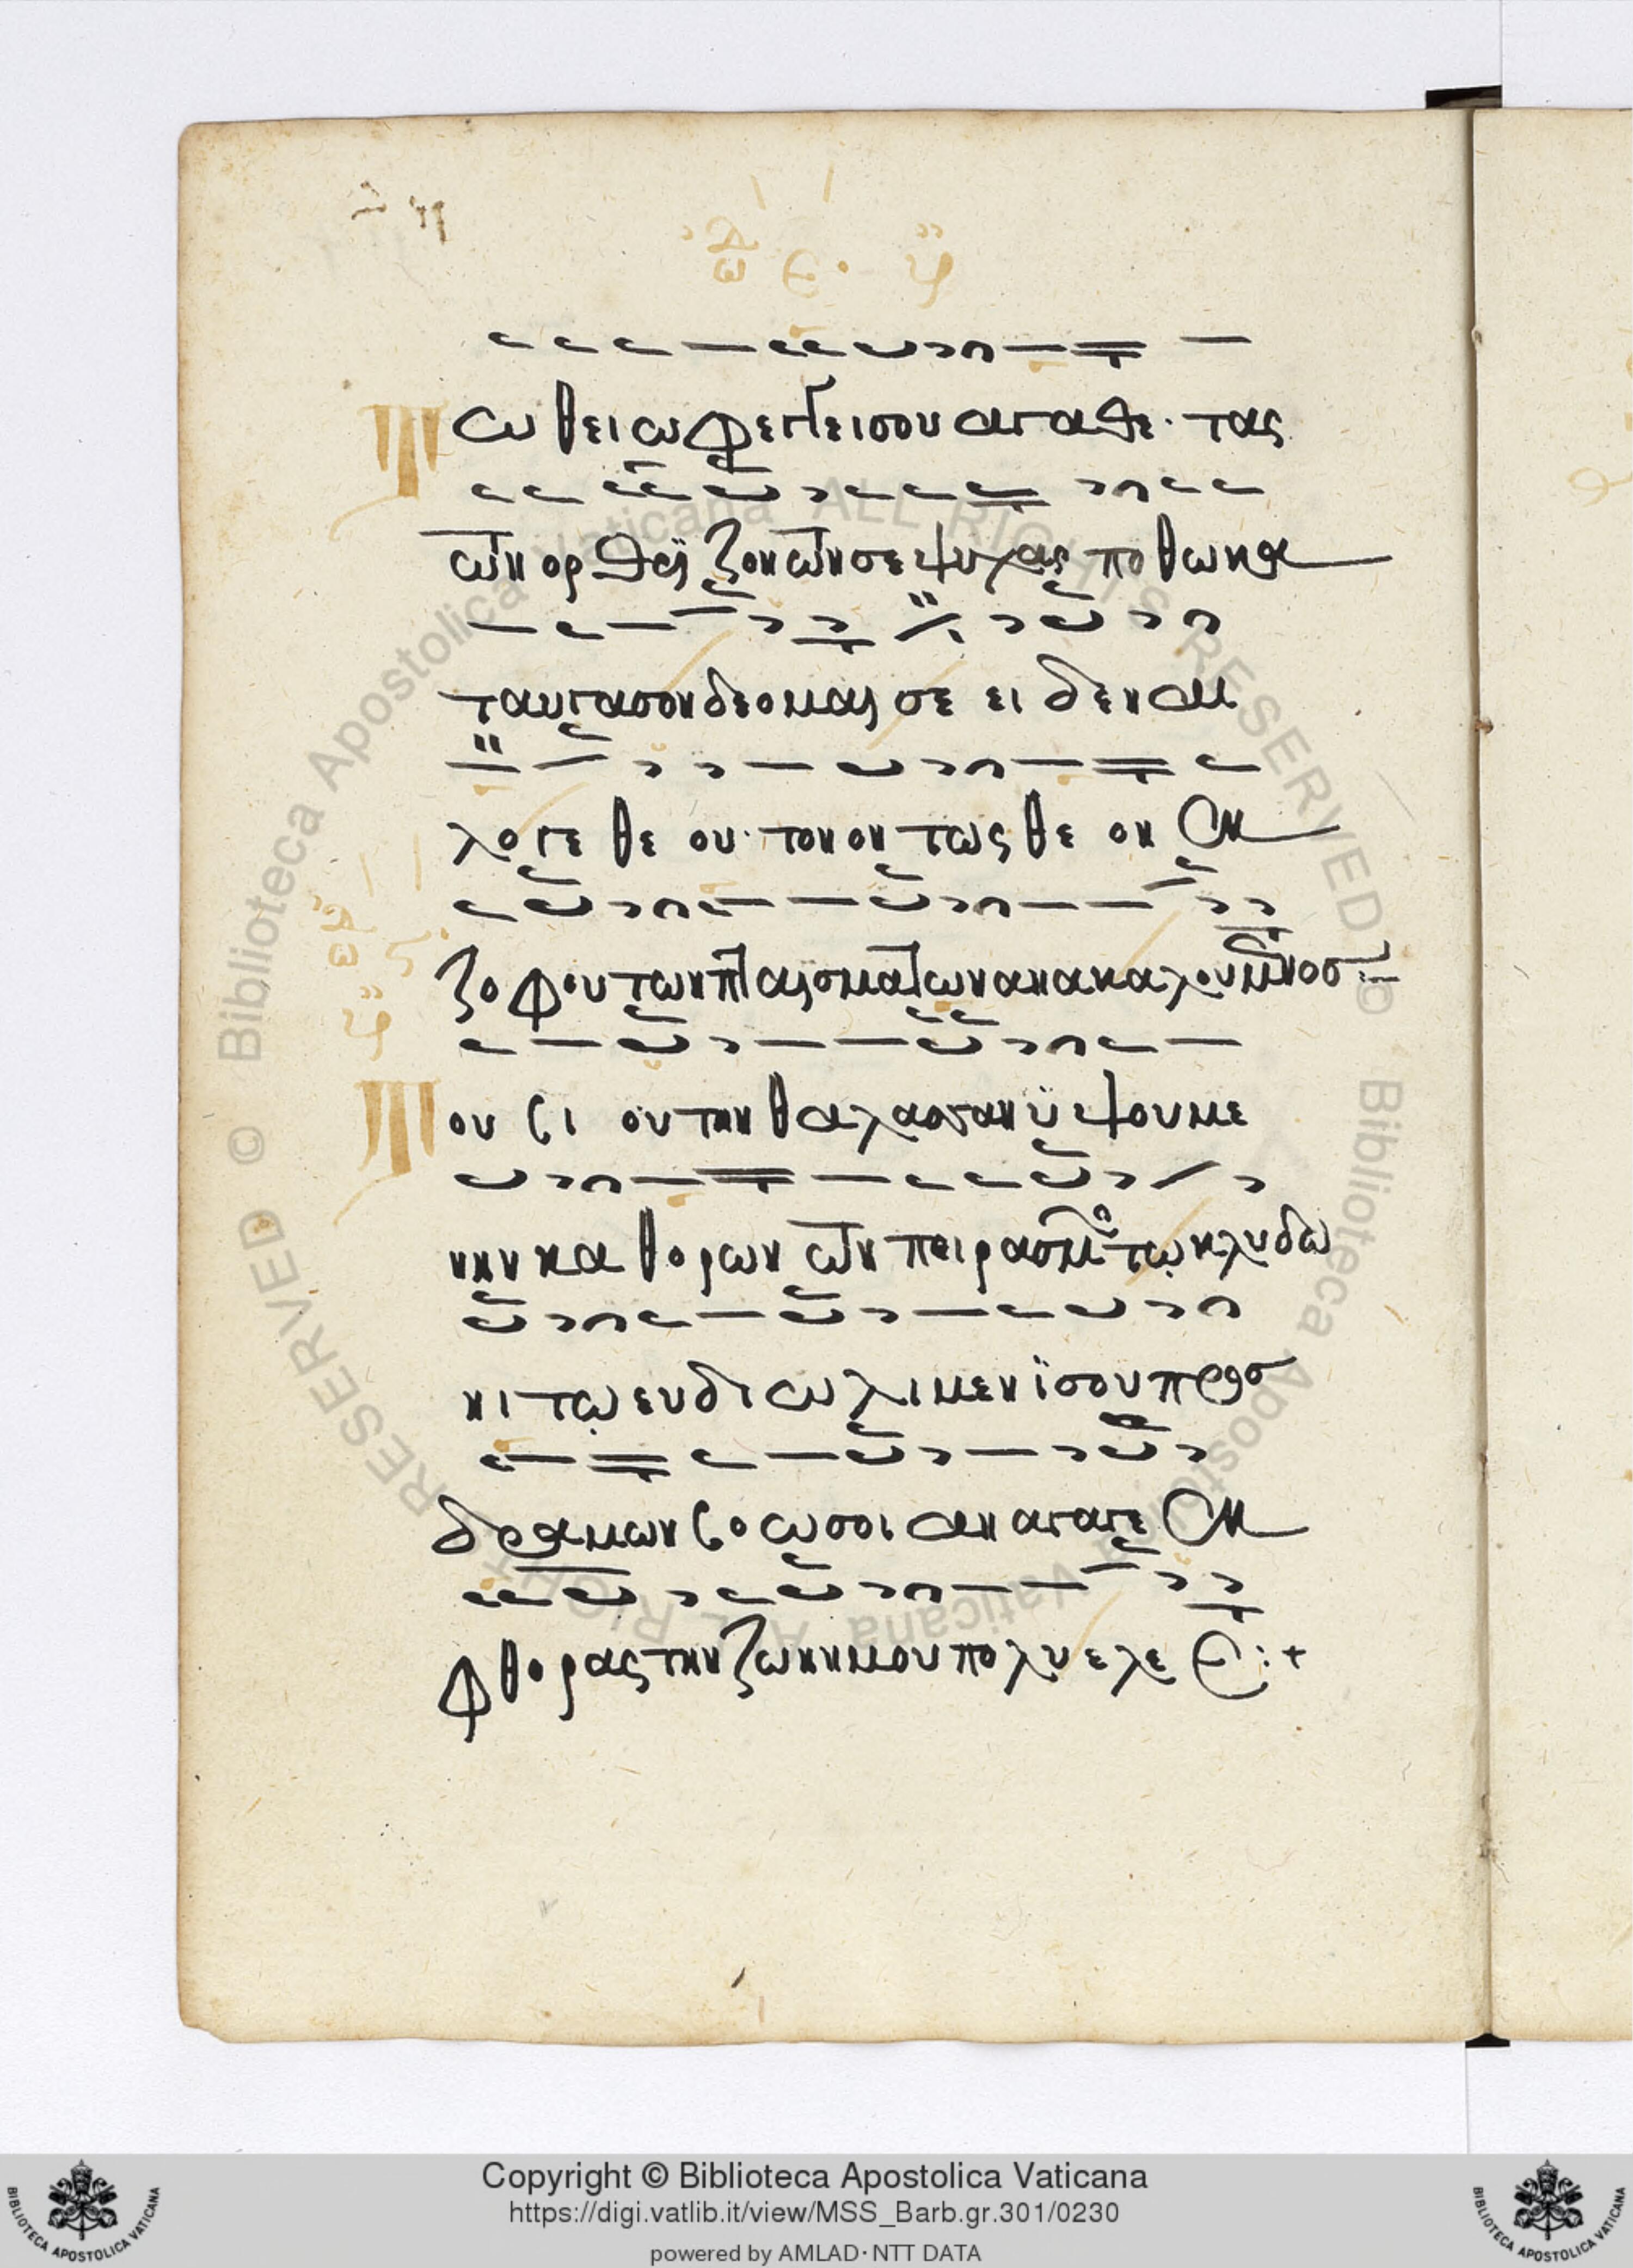 Τω θειω φεγγει σου αγαθε· τας
των ορθριζοντων σε ψυχας ποθω κα
ταυγασον δεομαι σε ειδεναι
λογε θεου· τον οντως θεον εκ
ζοφου των πταισματων ανακαλουμενον
Του βιου την θαλασσαν ὑψουμε
νην καθορων των πειρασμων τω κλυδω
νι τω ευδιω λιμενι σου προσ
δραμων βοω σοι αναγαγε εκ
φθορας την ζωην μου πολυελεε :+
Copyright © Biblioteca Apostolica Vaticana
https://digi.vatlib.it/view/MSS_Barb.gr.301/0230
powered by AMLAD·NTT DATA